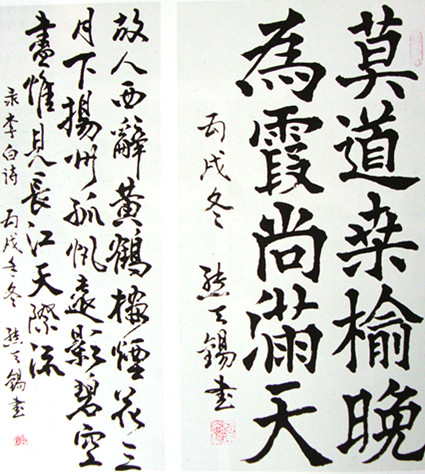 莫道桑榆晚
為霞尚滿天
丙戌冬 熊天錫書
故人西辭黃鶴樓煙花三
月下揚州孤帆遠影碧空
盡惟見長江天際流
录李白诗 丙戌年冬 熊天錫書